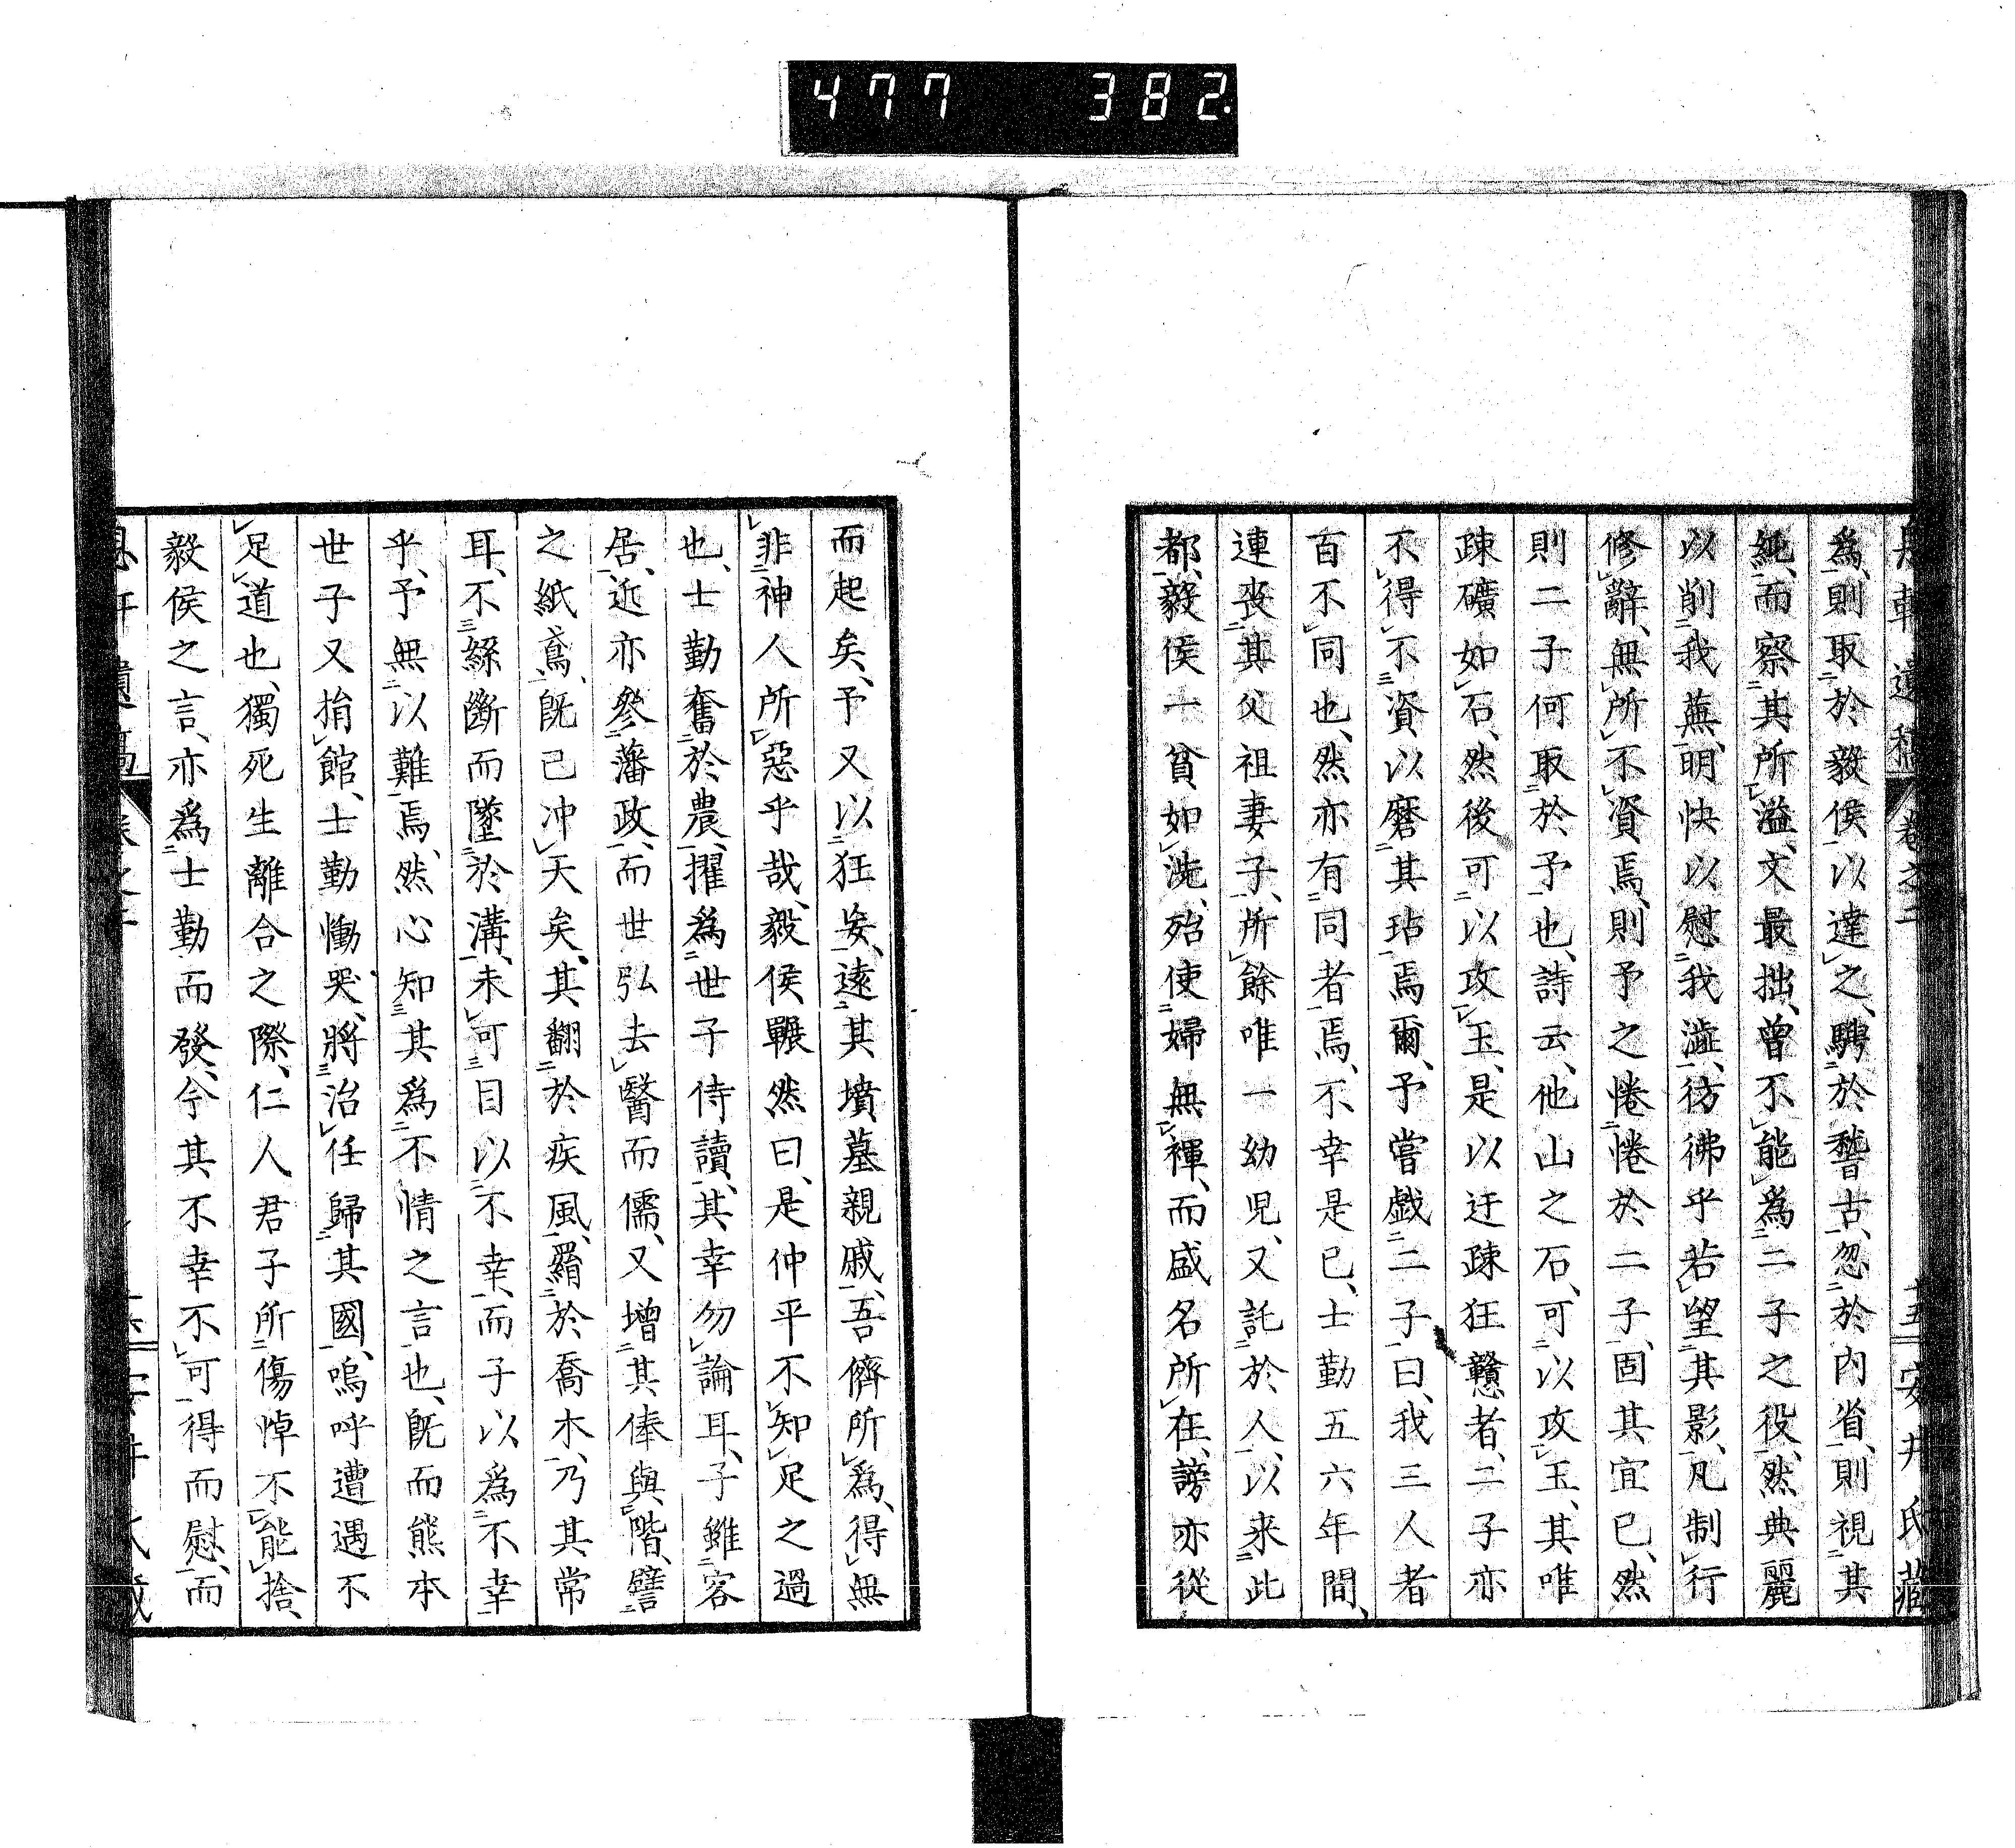 477 382.
軒遺稿 卷之二 十五 安井氏藏
爲、則取於毅侯以達之、騁於稽古、忽於內省、則視其
純、而察其所溢、文最拙、曾不能爲二子之役、然典麗
以削我蕪、明快以慰我澁、彷彿乎若望其影、凡制行
修辭、無所不資焉、則予之惓惓於二子、固其宜已、然
則二子何取於予也、詩云、他山之石、可以攻玉、其唯
疎礦如石、然後可以攻玉、是以迂疎狂戇者、二子亦
不得不資以磨其玷焉爾、予嘗戲二子曰、我三人者
百不同也、然亦有同者焉、不幸是已、士勤五六年間、
連喪其父祖妻子、所餘唯一幼兒、又託於人、以來此
都、毅侯一貧如洗、殆使婦無褌、而盛名所在、謗亦從
而起矣、予又以狂妄、遠其墳墓親戚、吾儕所爲、得無
非神人所惡乎哉、毅侯囅然曰、是仲平不知足之過
也、士勤奮於農、擢爲世子侍讀、其幸勿論耳、子雖客
居、近亦參藩政、而世弘去醫而儒、又增其俸與階、譬
之紙鳶、旣已冲天矣、其翻於疾風、罥於喬木、乃其常
耳、不綟斷而墜於溝、未可目以不幸、而子以爲不幸
乎、予無以難焉、然心知其爲不情之言也、旣而熊本
世子又捐館、士勤慟哭、將治任歸其國、嗚呼遭遇不
足道也、獨死生離合之際、仁人君子所傷悼不能捨、
毅侯之言、亦爲士勤而發、今其不幸不可得而慰、而